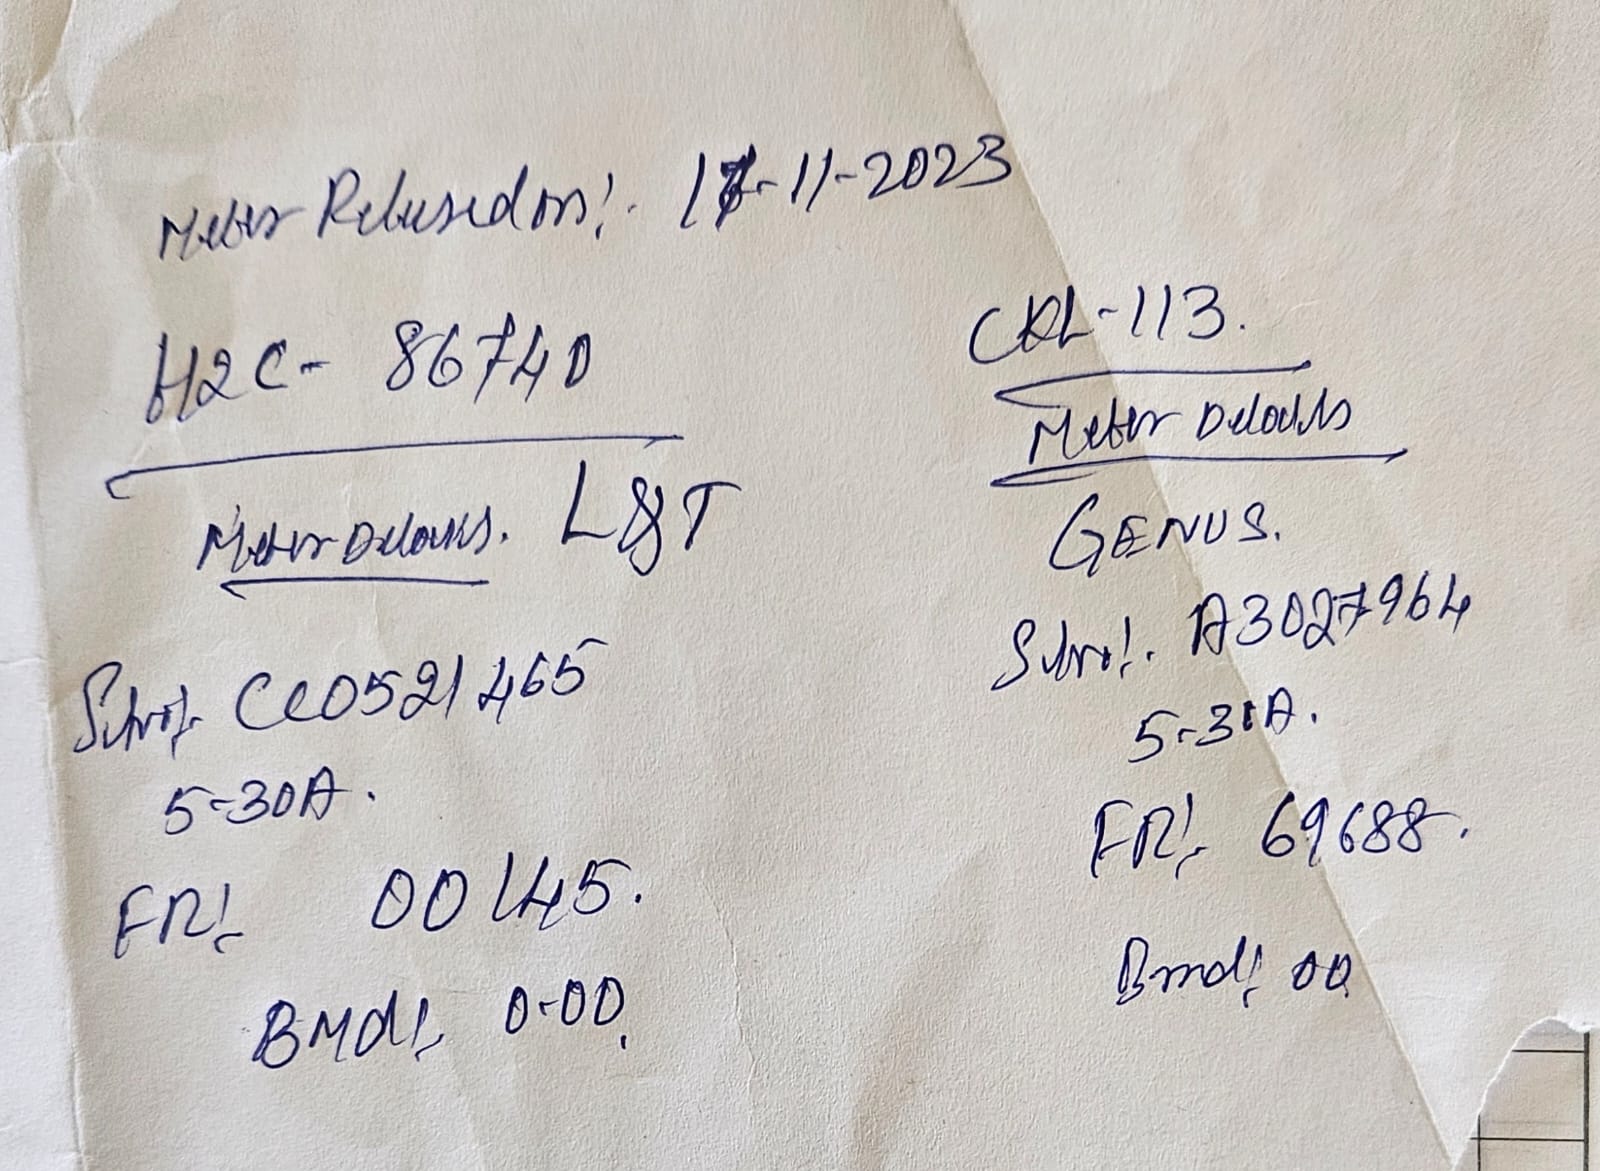 Meter Released on:- 17-11-2023
H2C- 86740
Meter Details. L&T
Slno:- CC0521465
5-30A.
FR:- 00145.
BMD:- 0-00.
CKL-113.
Meter Details
GENUS.
Slno:- A3027964
5-30A.
FR:- 69688.
Bmd:- 00